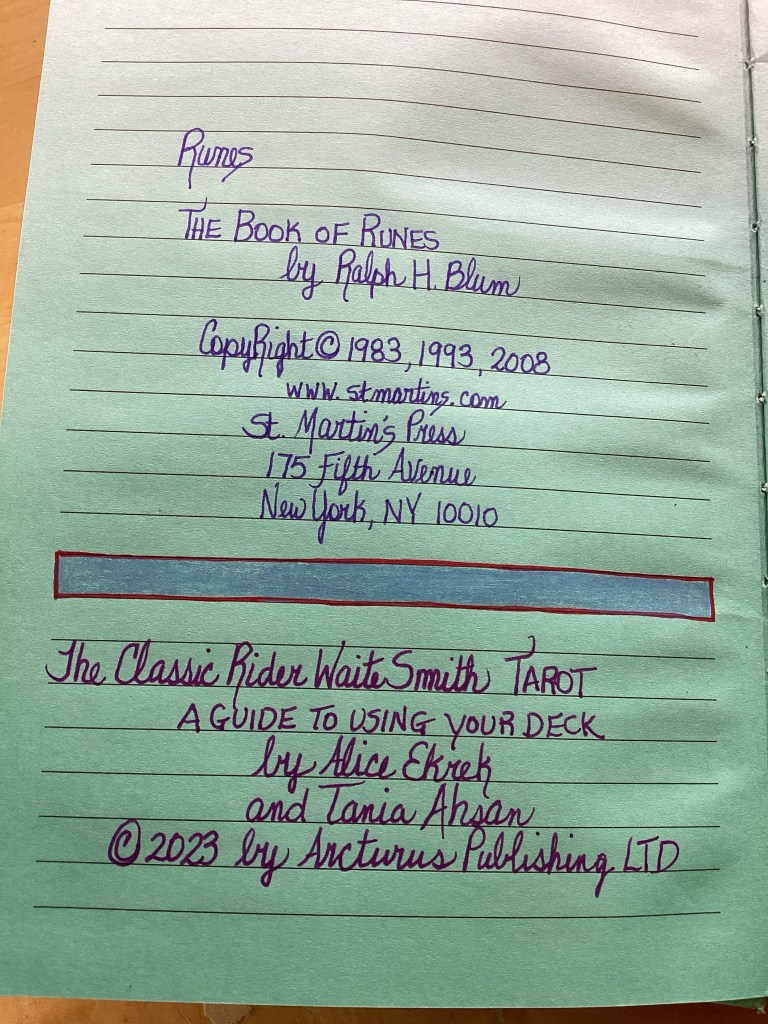 Runes
THE BOOK OF RUNES
by Ralph H. Blum
CopyRight © 1983, 1993, 2008
www.stmartins.com
St. Martin's Press
175 Fifth Avenue
New York, NY 10010
The Classic Rider Waite Smith TAROT
A GUIDE TO USING YOUR DECK
by Alice Ekrek
and Tania Ahsan
© 2023 by Arcturus Publishing LTD